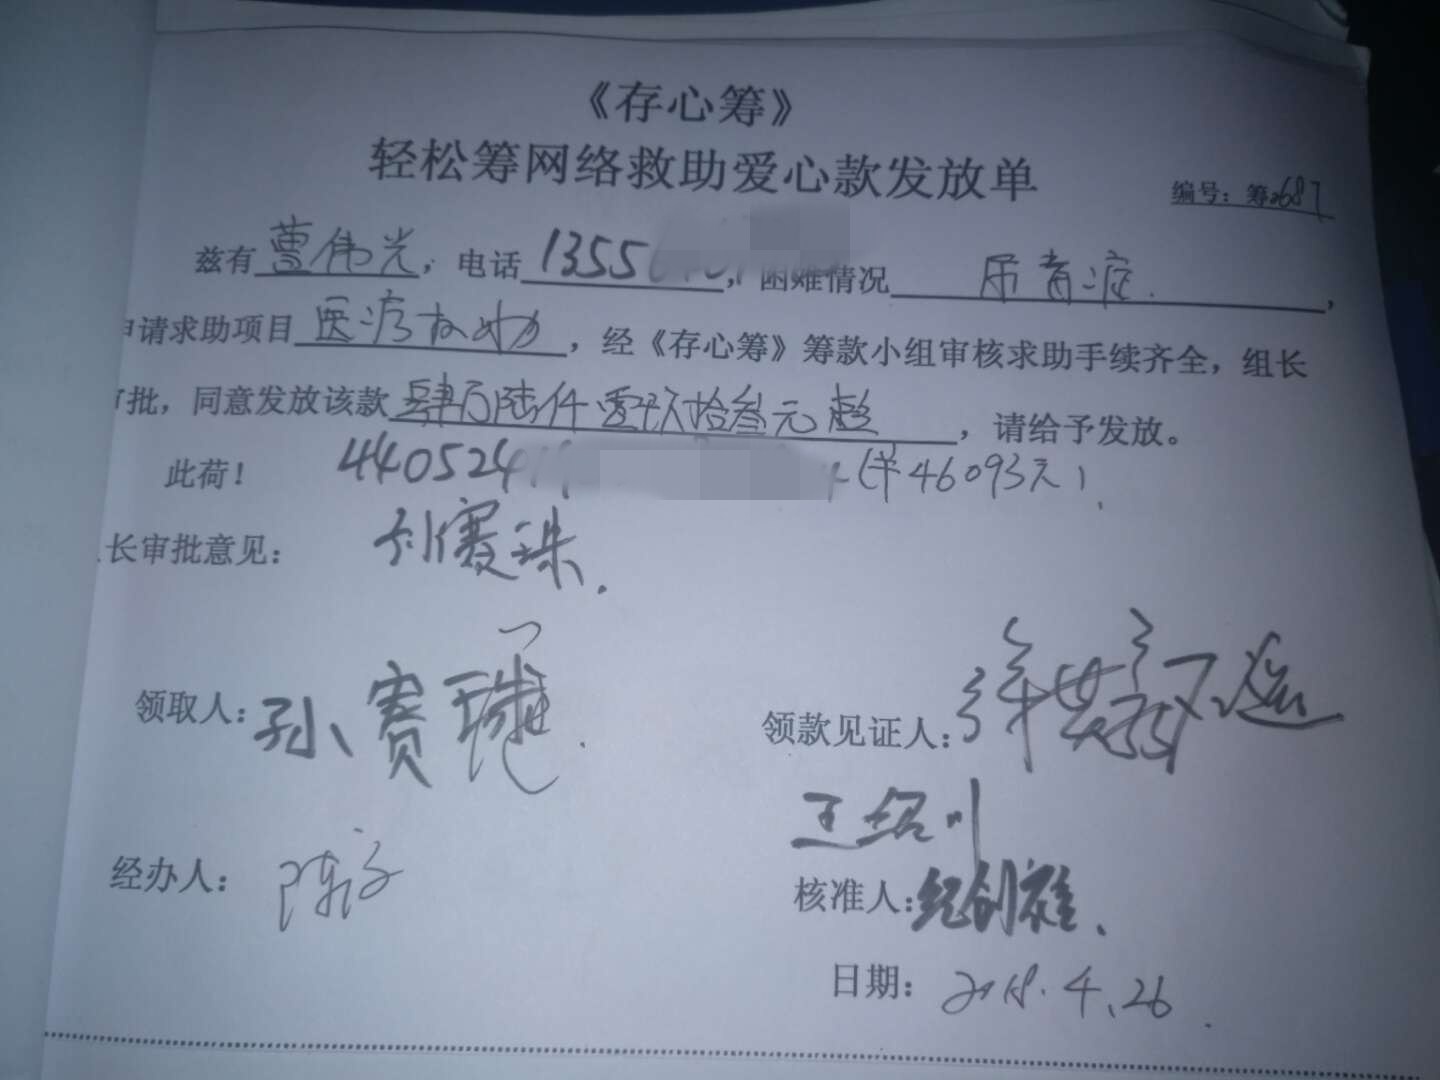 《存心筹》
轻松筹网络救助爱心款发放单
编号：筹2687
兹有曹伟光，电话1355，困难情况尿毒症，
申请求助项目医疗救助，经《存心筹》筹款小组审核求助手续齐全，组长
审批，同意发放该款肆万陆仟零玖拾叁元整，请给予发放。
此荷！ 440524 (¥46093元)
长审批意见： 刘赛珠
领取人：孙赛 领款见证人：
王绍川
经办人：陈 核准人：纪创雄
日期：2018.4.26